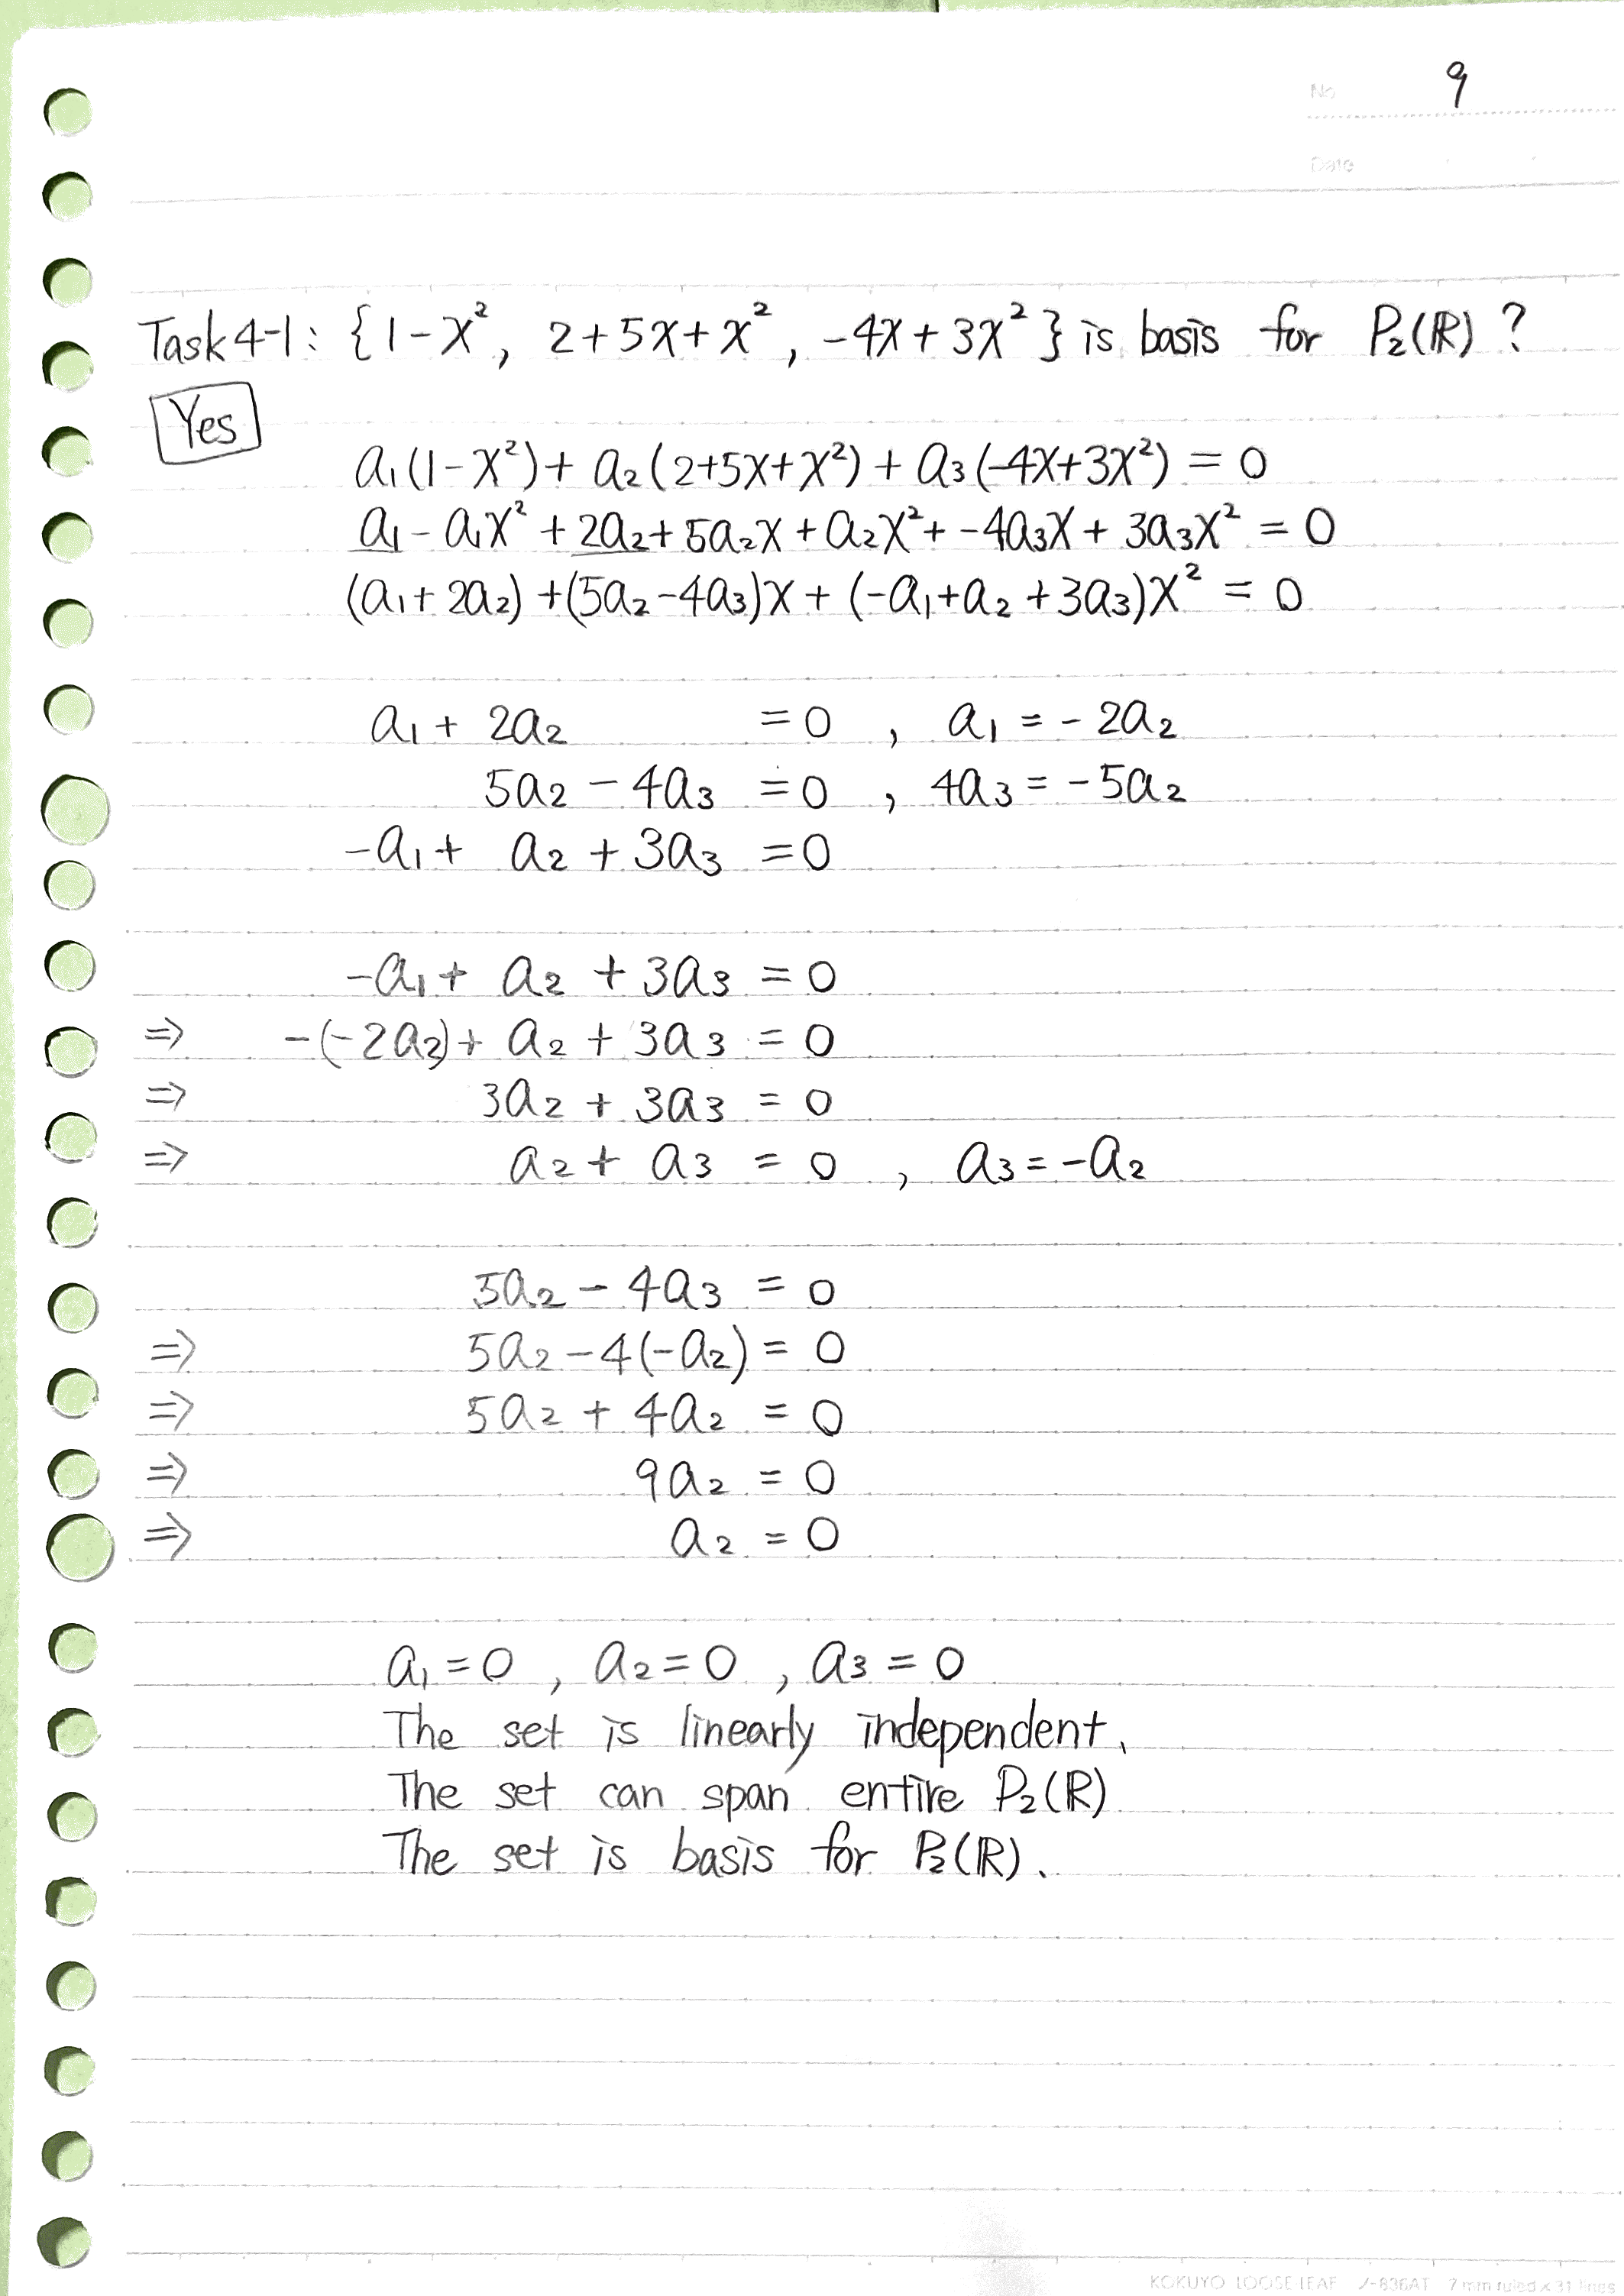 No 9
Date
Task 4-1: {1-x², 2+5x+x², -4x+3x²} is basis for P₂(ℝ) ?
Yes
a₁(1-x²)+ a₂(2+5x+x²) + a₃(-4x+3x²) = 0
a₁ - a₁x² + 2a₂+ 5a₂x + a₂x² + -4a₃x + 3a₃x² = 0
(a₁+ 2a₂) +(5a₂-4a₃)x + (-a₁+a₂+3a₃)x² = 0
a₁ + 2a₂ = 0 , a₁ = -2a₂
5a₂ - 4a₃ = 0 , 4a₃ = -5a₂
-a₁ + a₂ + 3a₃ = 0
-a₁ + a₂ + 3a₃ = 0
⇒ -(-2a₂)+ a₂ + 3a₃ = 0
⇒ 3a₂ + 3a₃ = 0
⇒ a₂ + a₃ = 0 , a₃ = -a₂
5a₂ - 4a₃ = 0
⇒ 5a₂ - 4(-a₂) = 0
⇒ 5a₂ + 4a₂ = 0
⇒ 9a₂ = 0
⇒ a₂ = 0
a₁ = 0 , a₂ = 0 , a₃ = 0
The set is linearly independent.
The set can span entire P₂(ℝ)
The set is basis for P₂(ℝ).
KOKUYO LOOSE LEAF ノ-836AT 7 mm ruled x 31 lines